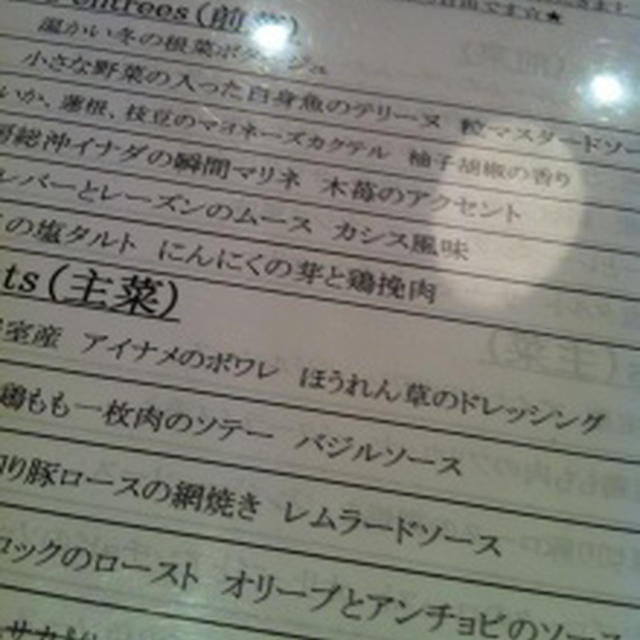 entrees(前菜)
温かい冬の根菜ポタージュ
小さな野菜の入った白身魚のテリーヌ 粒マスタードソー
いか、蓮根、枝豆のマヨネーズカクテル 柚子胡椒の香り
房総沖イナダの瞬間マリネ 木苺のアクセント
レバーとレーズンのムース カシス風味
の塩タルト にんにくの芽と鶏挽肉
ts(主菜)
室産 アイナメのポワレ ほうれん草のドレッシング
鶏もも一枚肉のソテー バジルソース
切り豚ロースの網焼き レムラードソース
ロックのロースト オリーブとアンチョビのソース